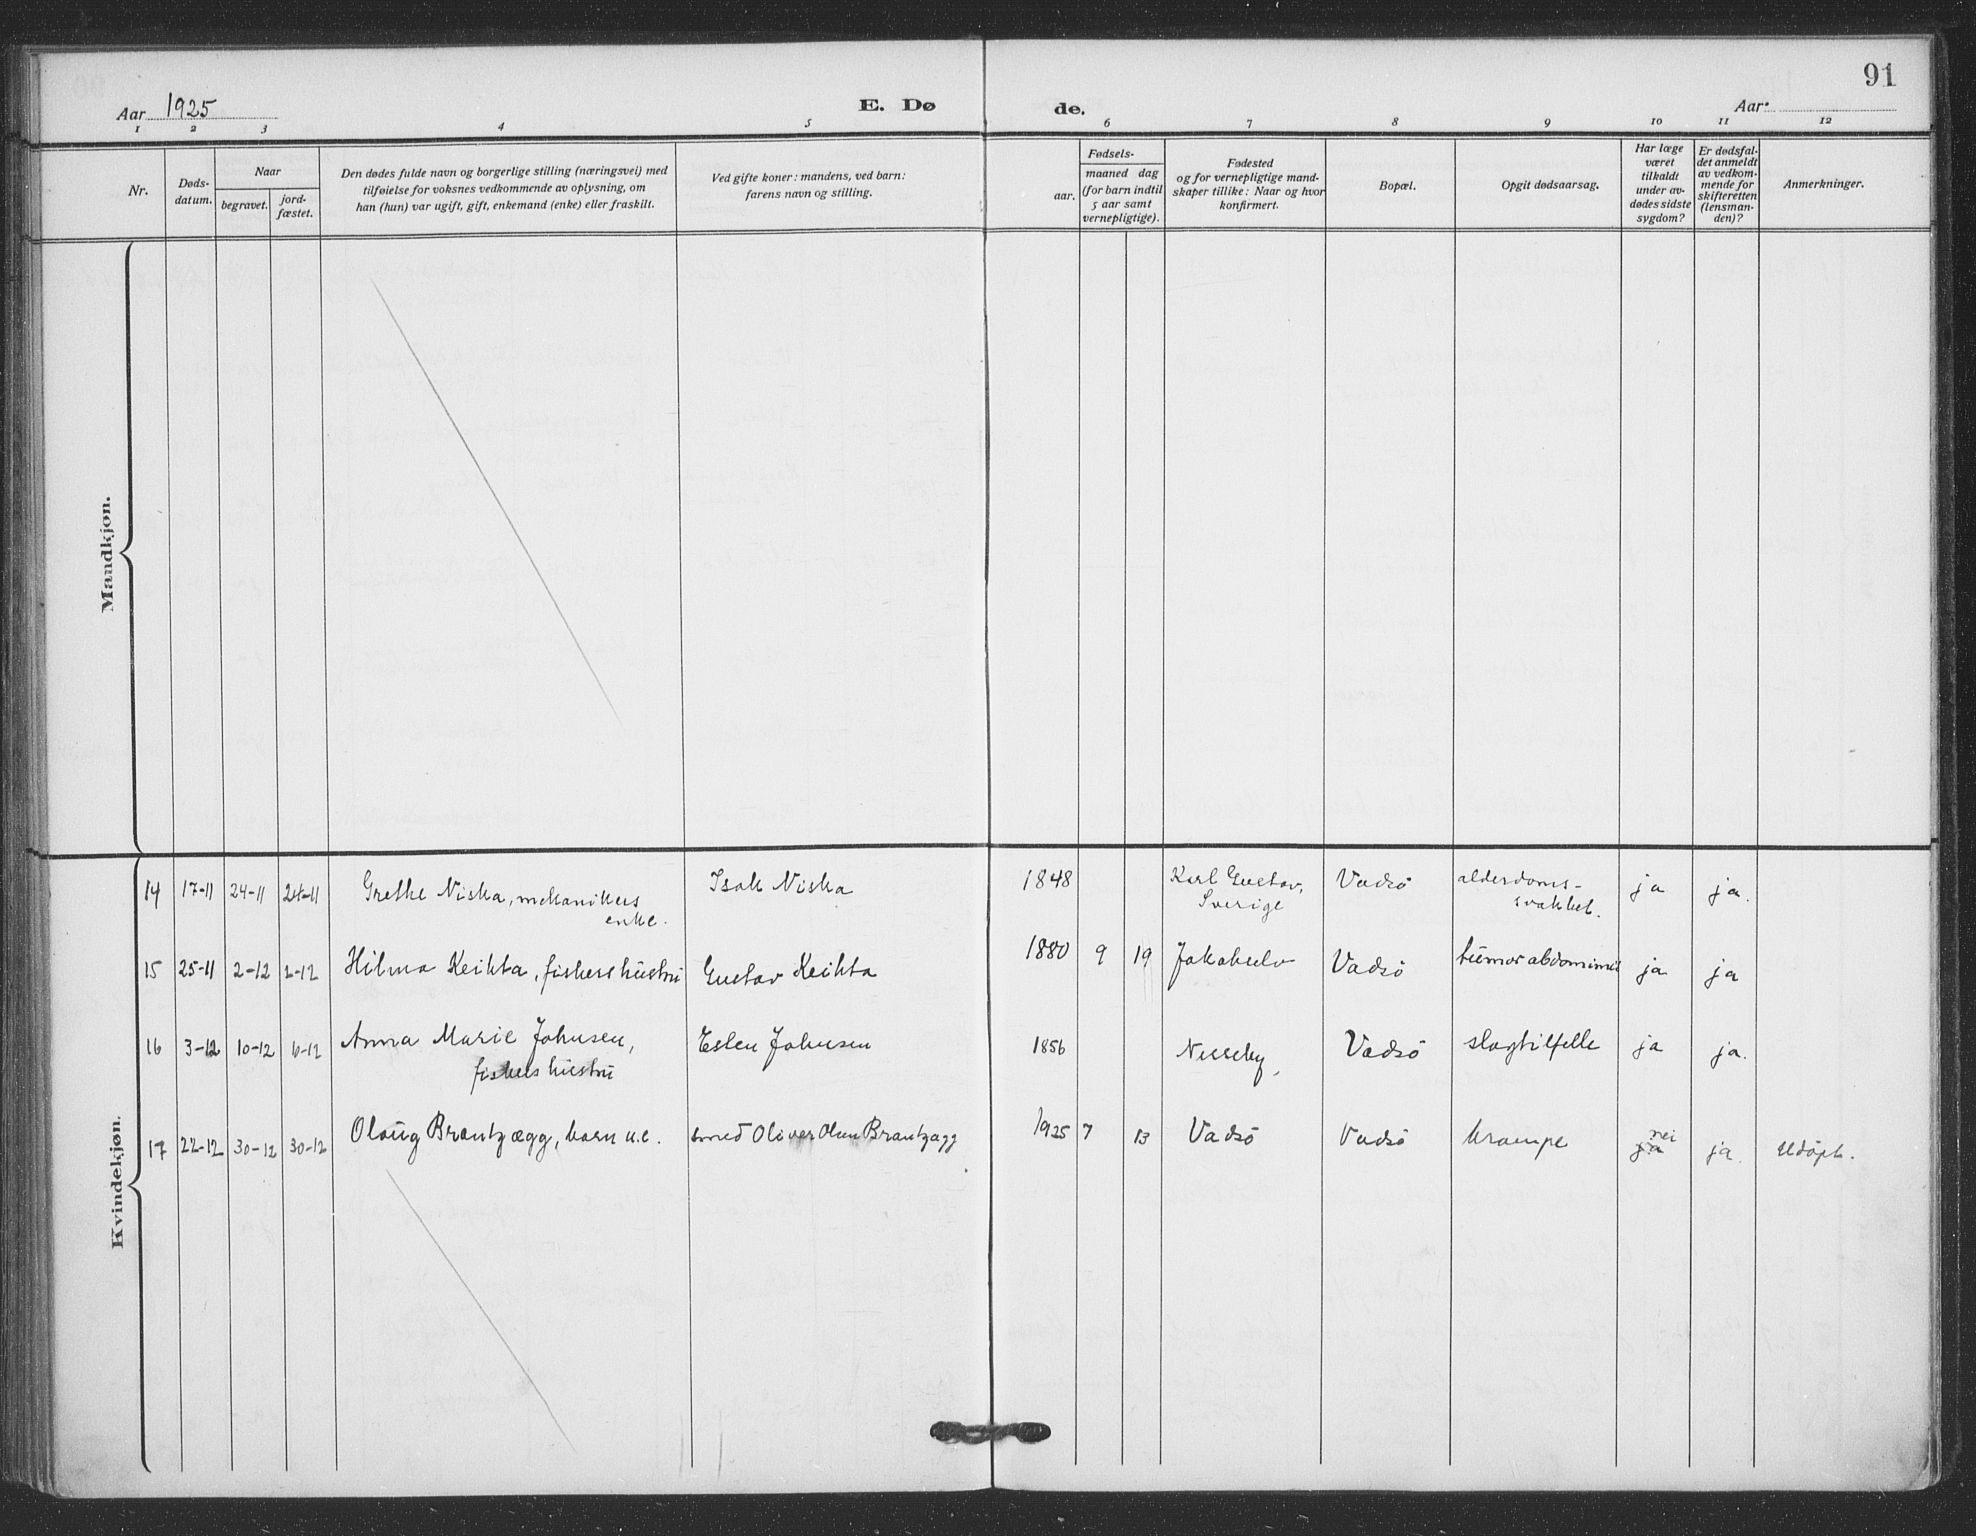 91
Aar 1925
E. Døde.
Aar
1 2 3 4 5 6 7 8 9 10 11 12
Nr.
Døds-
datum.
Naar
begravet.
jord-
fæstet.
Den dødes fulde navn og borgerlige stilling (næringsvei) med
tilføielse for voksnes vedkommende av oplysning, om
han (hun) var ugift, gift, enkemand (enke) eller fraskilt.
Ved gifte koner: mandens, ved barn:
farens navn og stilling.
Fødsels-
aar.
maaned dag
(for barn indtil
5 aar samt
vernepligtige).
Fødested
og for vernepligtige mand-
skaper tillike: Naar og hvor
konfirmert.
Bopæl.
Opgit dødsaarsag.
Har læge
været
tilkaldt
under av-
dødes sidste
sygdom?
Er dødsfal-
det anmeldt
av vedkom-
mende for
skifteretten
(lensman-
den)?
Anmerkninger.
Mandkjøn.
Kvindekjøn.
14 17-11 24-11 24-11 Grethe Niska, mekanikers
enke.
Isak Niska 1848 Karl Gustav,
Sverige
Vadsö alderdoms-
svakhet.
ja ja.
15 25-11 2-12 2-12 Hilma Keikta, fiskers hustru Gustav Keikta 1880 9 19 Jakobselv Vadsö tumor abdominis ja ja
16 3-12 10-12 6-12 Anna Marie Johnsen,
fiskers hustru
Eslen Johnsen 1856 Nesseby, Vadsö slagtilfelle ja ja.
17 22-12 30-12 30-12 Olaug Brantzægg, barn u.e. smed Oliver Olsen Brantzægg 1925 7 13 Vadsö Vadsö krampe nei
ja
ja. Udöpt.